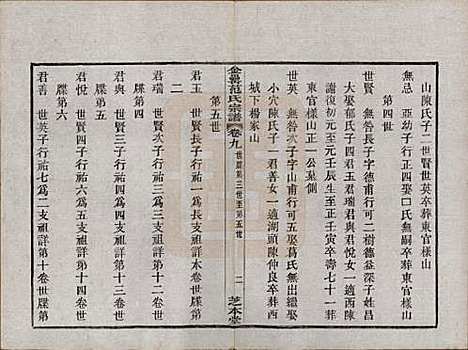 山陳氏子二世賢世英卒葬東官樣山
無忌 亞幼子行正四娶口氏無嗣卒葬東官樣山
第四世
世賢 無咎長子字德甫行可二樹德益深子姓昌
大娶郁氏子四君玉君瑞君與君悅女一適西陳
諱復初至元壬辰生至正壬寅卒壽七十一葬
東官樣山正一公墓側
世英 無咎次子字山甫行可五娶葛氏無出繼娶
小穴陳氏子一君善女一適湖頭陳仲良卒葬
城下楊家山
范氏宗譜 卷九 世牒第三世至第五世 二 芝本堂
第五世
君玉 世賢長子行祐一為長支祖詳本卷世牒第
二
君瑞 世賢次子行祐三為三支祖詳第十一卷世
牒第四
君與 世賢三子行祐四為四支祖詳第十三卷世
牒第五
君悅 世賢四子行祐六為五支祖詳第十四卷世
牒第六
君善 世英子行祐七為二支祖詳第十卷世牒第